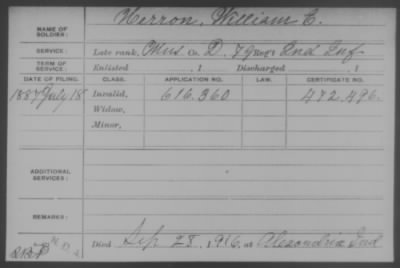 NAME OF SOLDIER: Herron, William C.
SERVICE: Late rank, Mus Co. D. 79 Reg't Ind Inf
TERM OF SERVICE: Enlisted , 1 Discharged , 1
DATE OF FILING. CLASS. APPLICATION NO. LAW. CERTIFICATE NO.
1887 July 18 Invalid, 616.360 472.496.
Widow,
Minor,
ADDITIONAL SERVICES:
REMARKS:
Died Sep 28, 1916, at Alexandria Ind